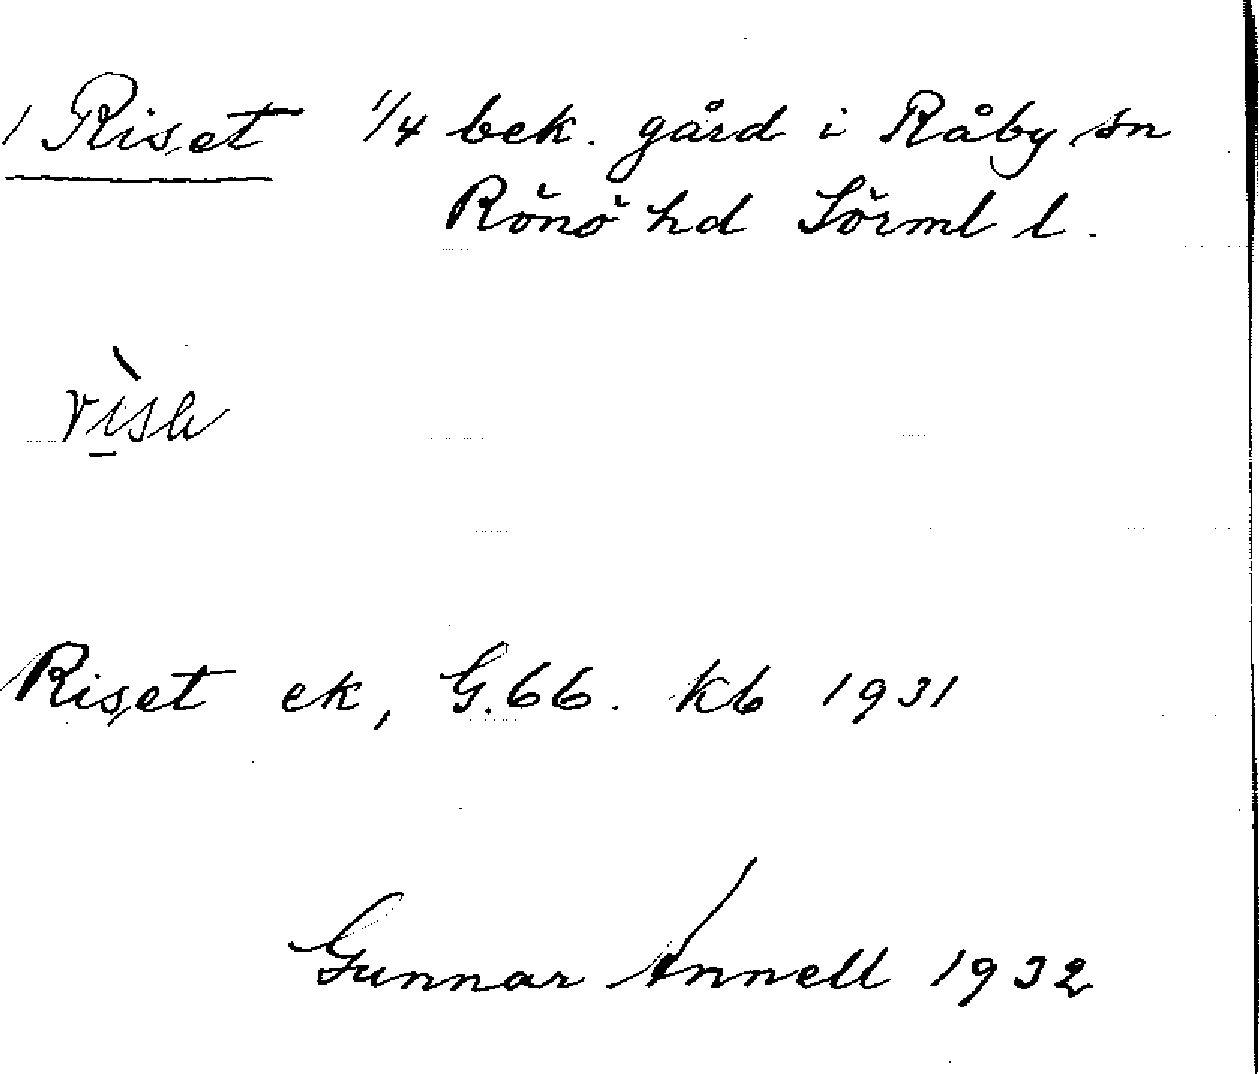 1 Riset 1/4 bek. gård i Råby sn
Rönö hd Sörml l.
Riset ek, G.66. kb 1931
Gunnar Annell 1932